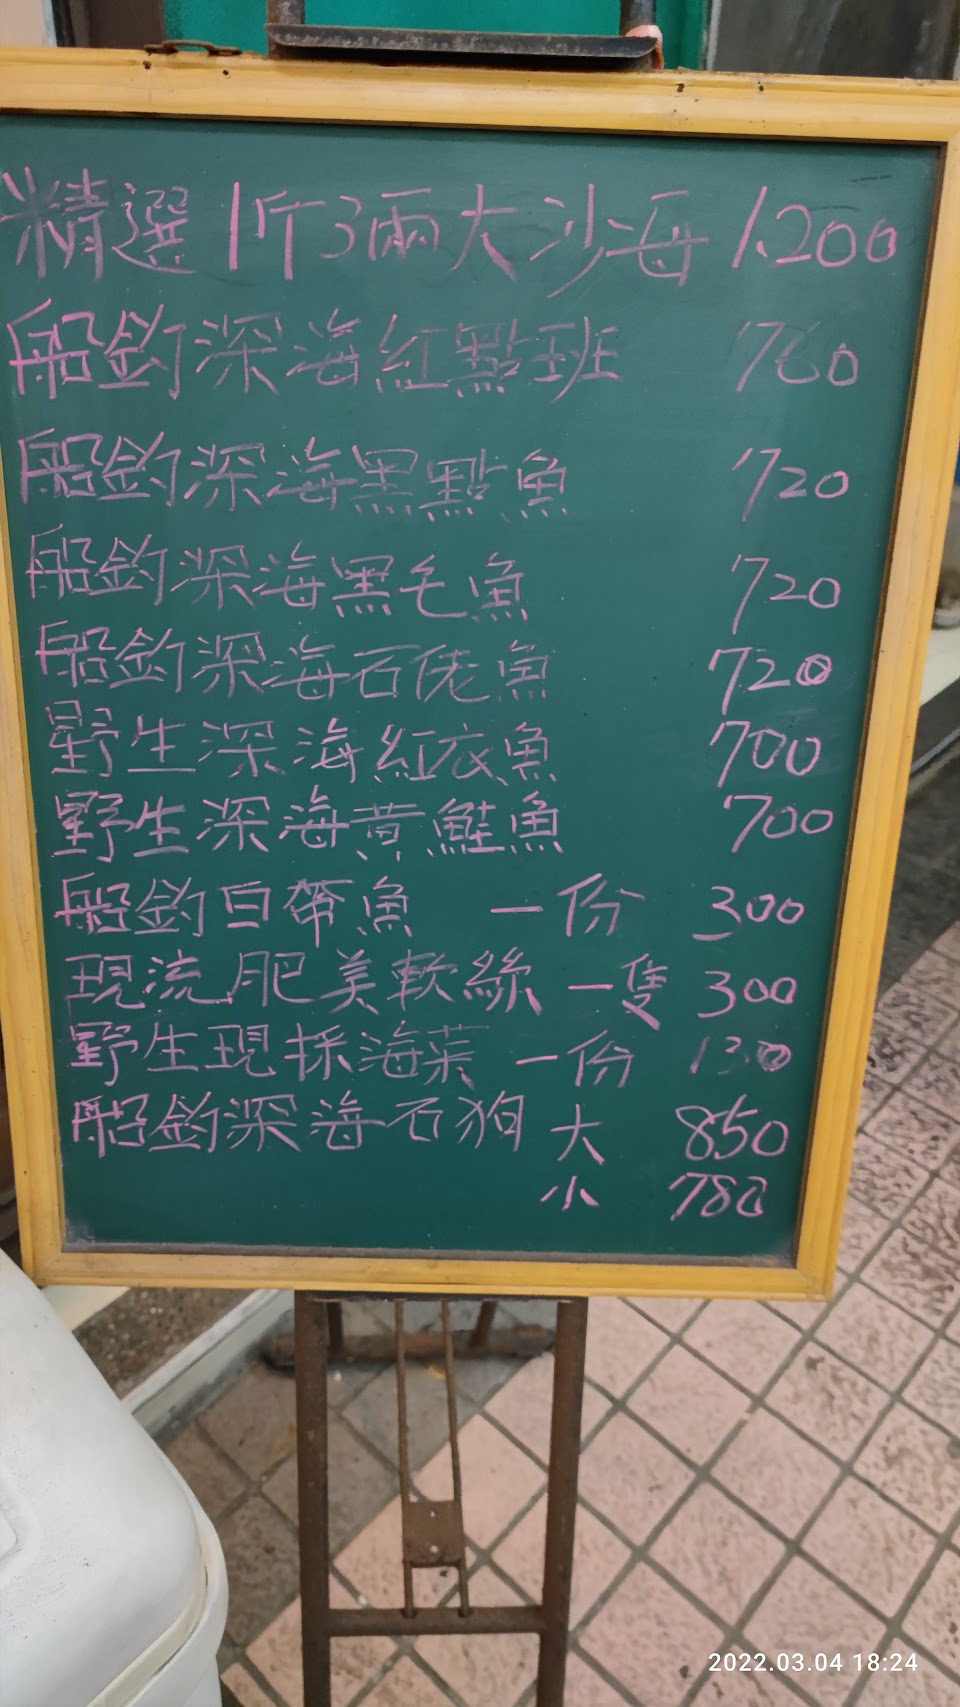 精選1斤3兩大沙海 1.200
船釣深海紅點班 760
船釣深海黑點魚 720
船釣深海黑毛魚 720
船釣深海石佬魚 720
野生深海紅衣魚 700
野生深海黃鮭魚 700
船釣白帶魚 一份 300
現流肥美軟絲 一隻 300
野生現採海菜 一份 130
船釣深海石狗 大 850
小 780
2022.03.04 18:24